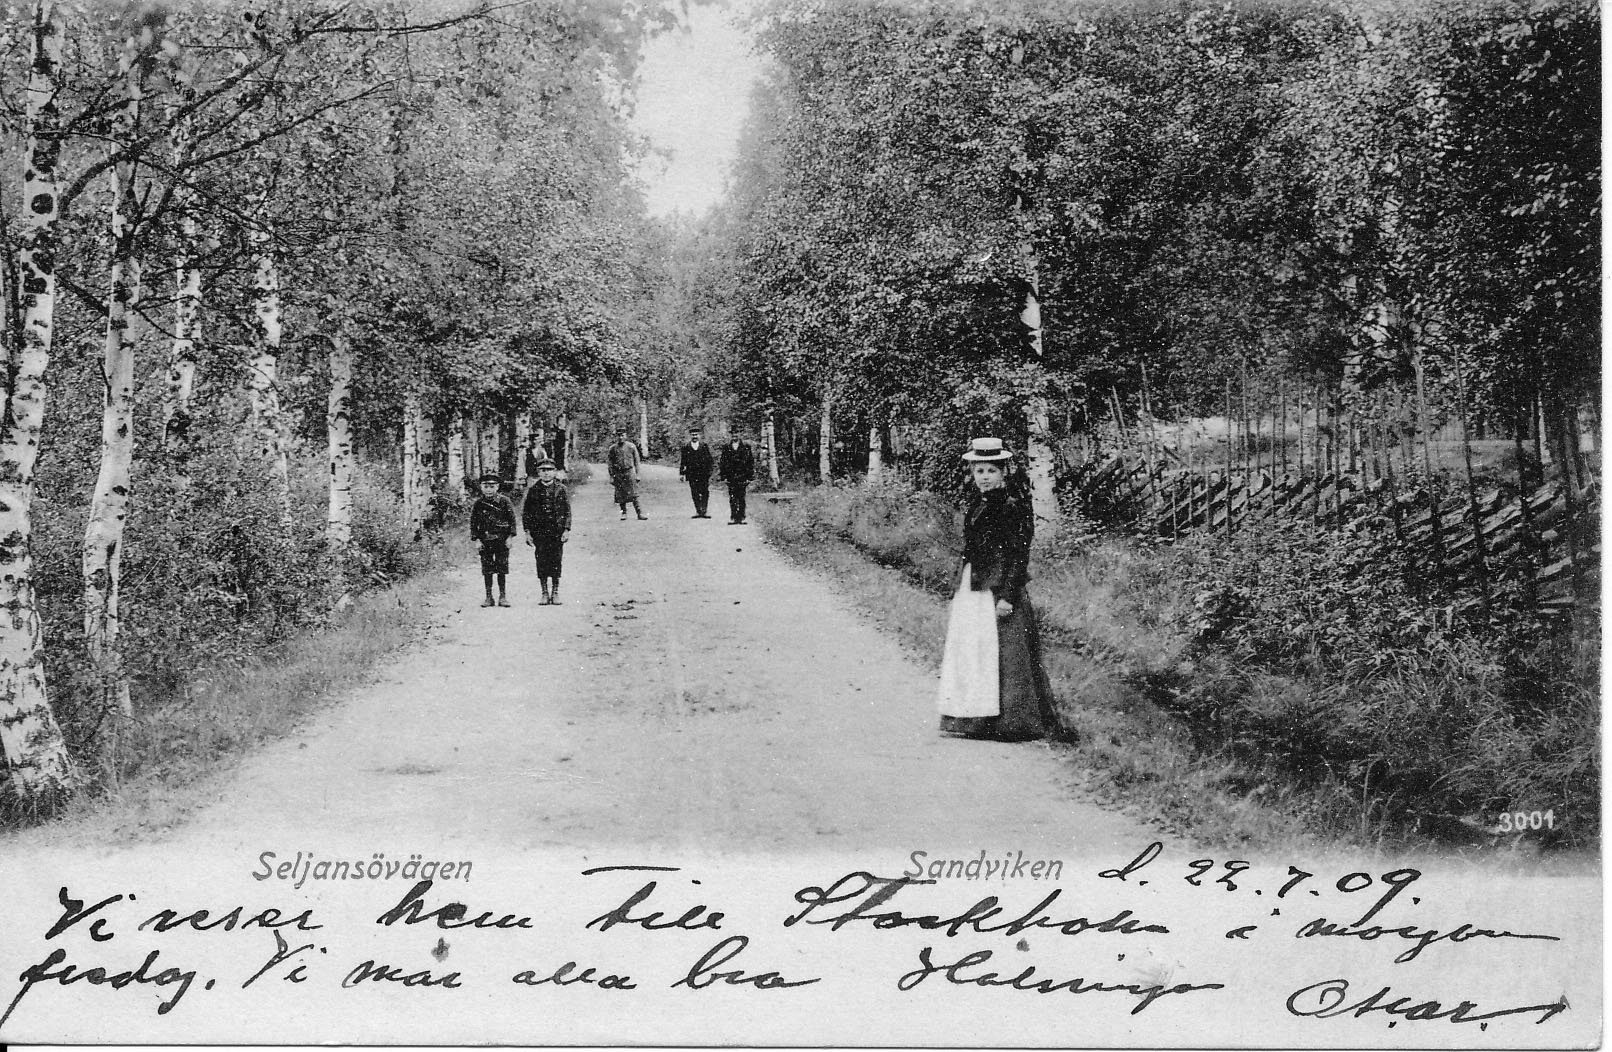 3001
Seljansövägen Sandviken d. 22.7.09
Vi reser hem till Stockholm i morgon
fredag. Vi mår alla bra Hälsningar
Oskar.